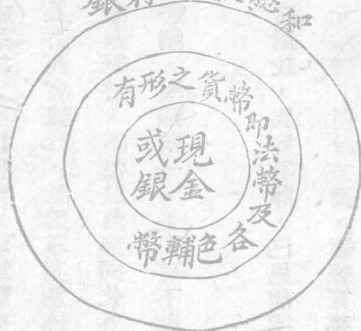 銀行
總和
有形之貨幣即法幣及各色輔幣
現金
或銀